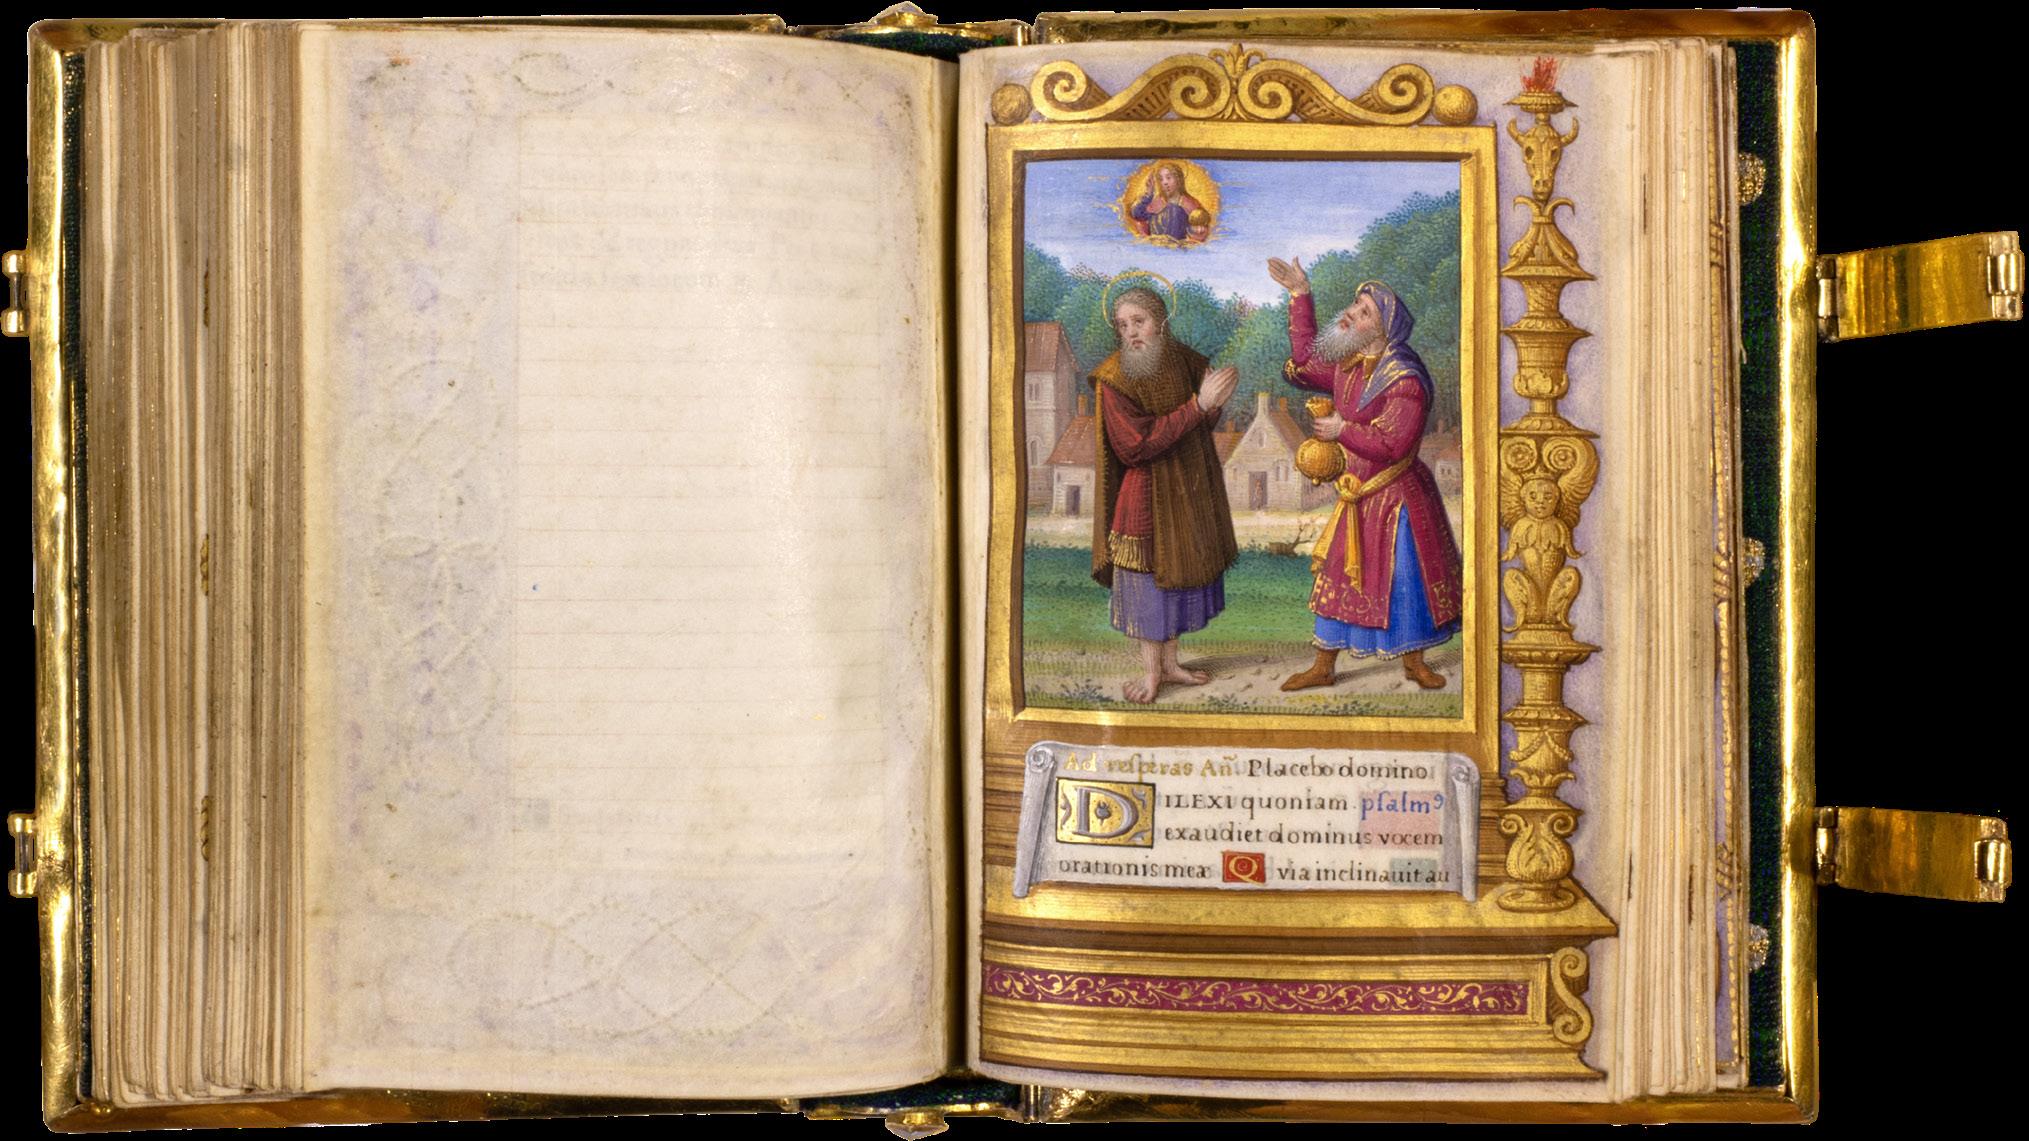 Ad vesperas Añ Placebo domino
DILEXI quoniam psalmꝰ
exaudiet dominus vocem
orationis meæ Q via inclinauit au